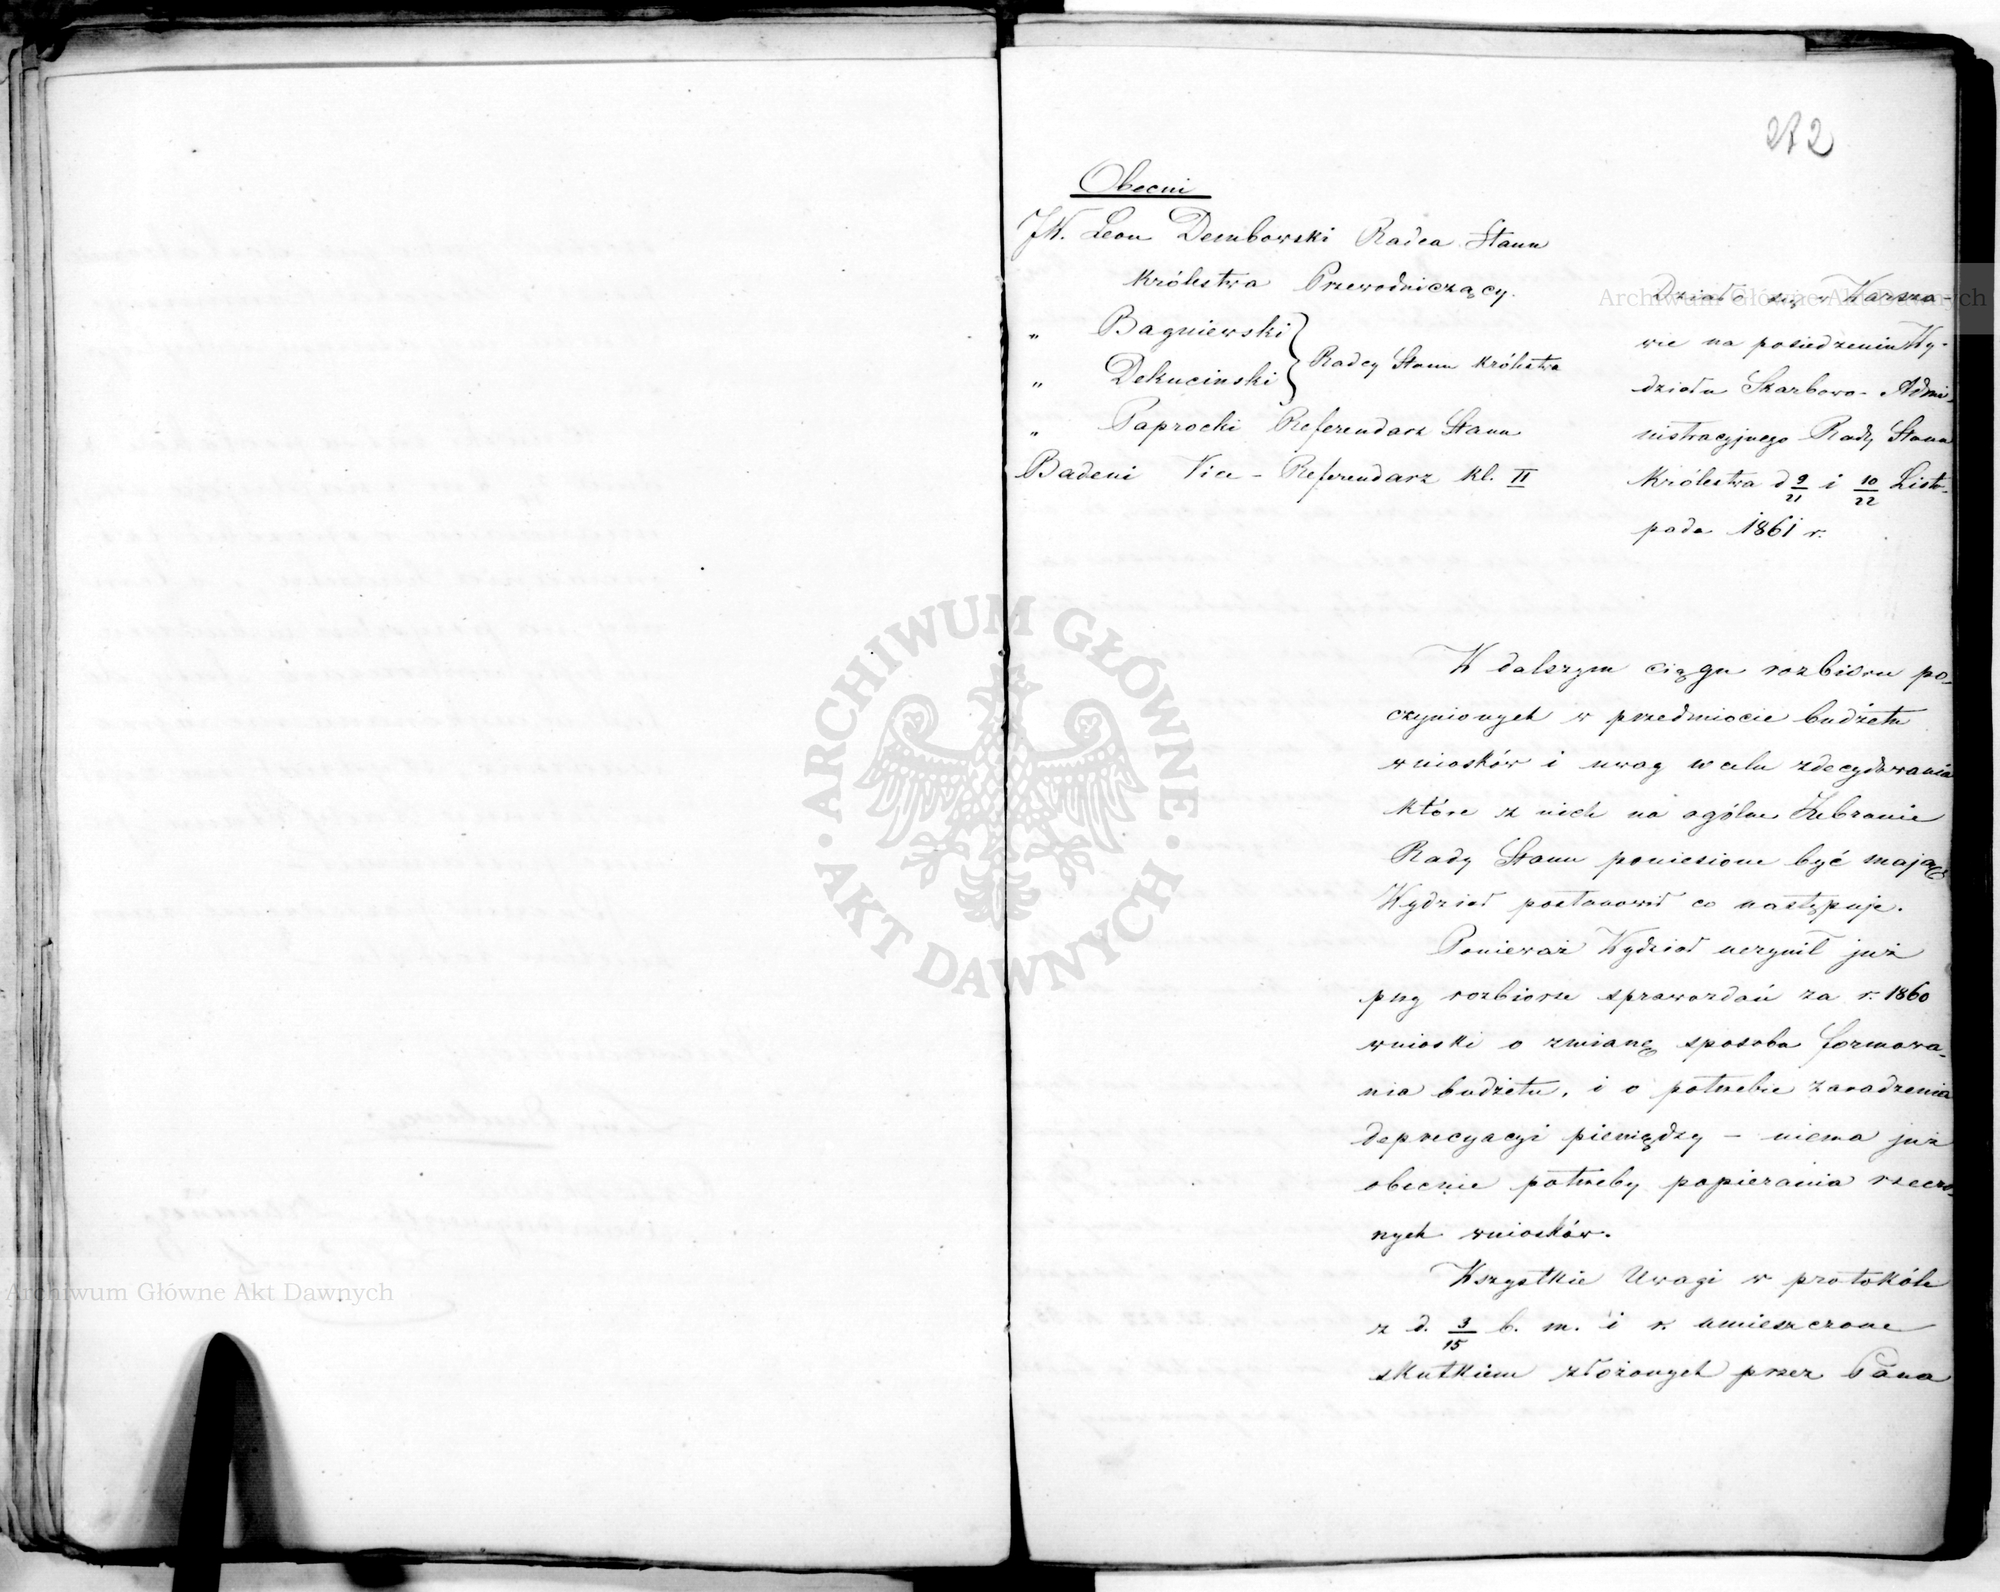 272
Obecni
JW. Leon Dembowski Radca Stanu
Królestwa Przewodniczący.
„ Bagniewski
„ Dekuciński } Radcy Stanu Królestwa
„ Paprocki Referendarz Stanu
Badeni Vice-Referendarz kl. II
Działo się w Warsza-
wie na posiedzeniu Wy-
działu Skarbowo-Admi-
nistracyjnego Rady Stanu
Królestwa d 9/21 i 10/22 Listo-
pada 1861 r.
W dalszym ciągu rozbioru po-
czynionych w przedmiocie budżetu
wniosków i uwag w celu zdecydowania
które z nich na ogólne Zebranie
Rady Stanu poniesione być mają
Wydział postanowił co następuje.
Ponieważ Wydział uczynił już
przy rozbiorze sprawozdań za r. 1860
wnioski o zmianę sposobu formowa-
nia budżetu, i o potrzebie zaradzenia
deprecyacyi pieniędzy – niema już
obecnie potrzeby popierania rzeczo-
nych wniosków.
Wszystkie Uwagi w protokóle
z d. 3/15 b. m. i r. umieszczone
skutkiem złożonych przez Pana
ARCHIWUM GŁÓWNE · AKT DAWNYCH ·
Archiwum Główne Akt Dawnych
Archiwum Główne Akt Dawnych